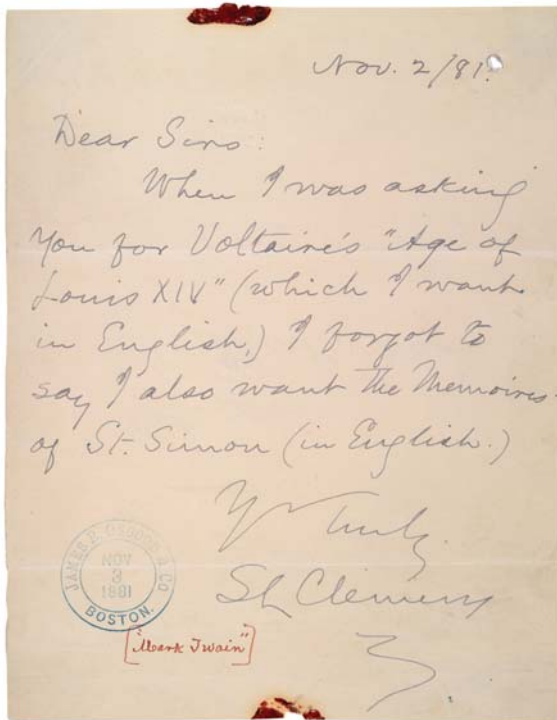 Nov. 2/81.
Dear Sirs:
When I was asking
you for Voltaire's "Age of
Louis XIV" (which I want
in English,) I forgot to
say I also want the Memoires
of St. Simon (in English.)
Yrs Truly
SL Clemens
JAMES R. OSGOOD & CO
NOV
3
1881
BOSTON.
["Mark Twain"]